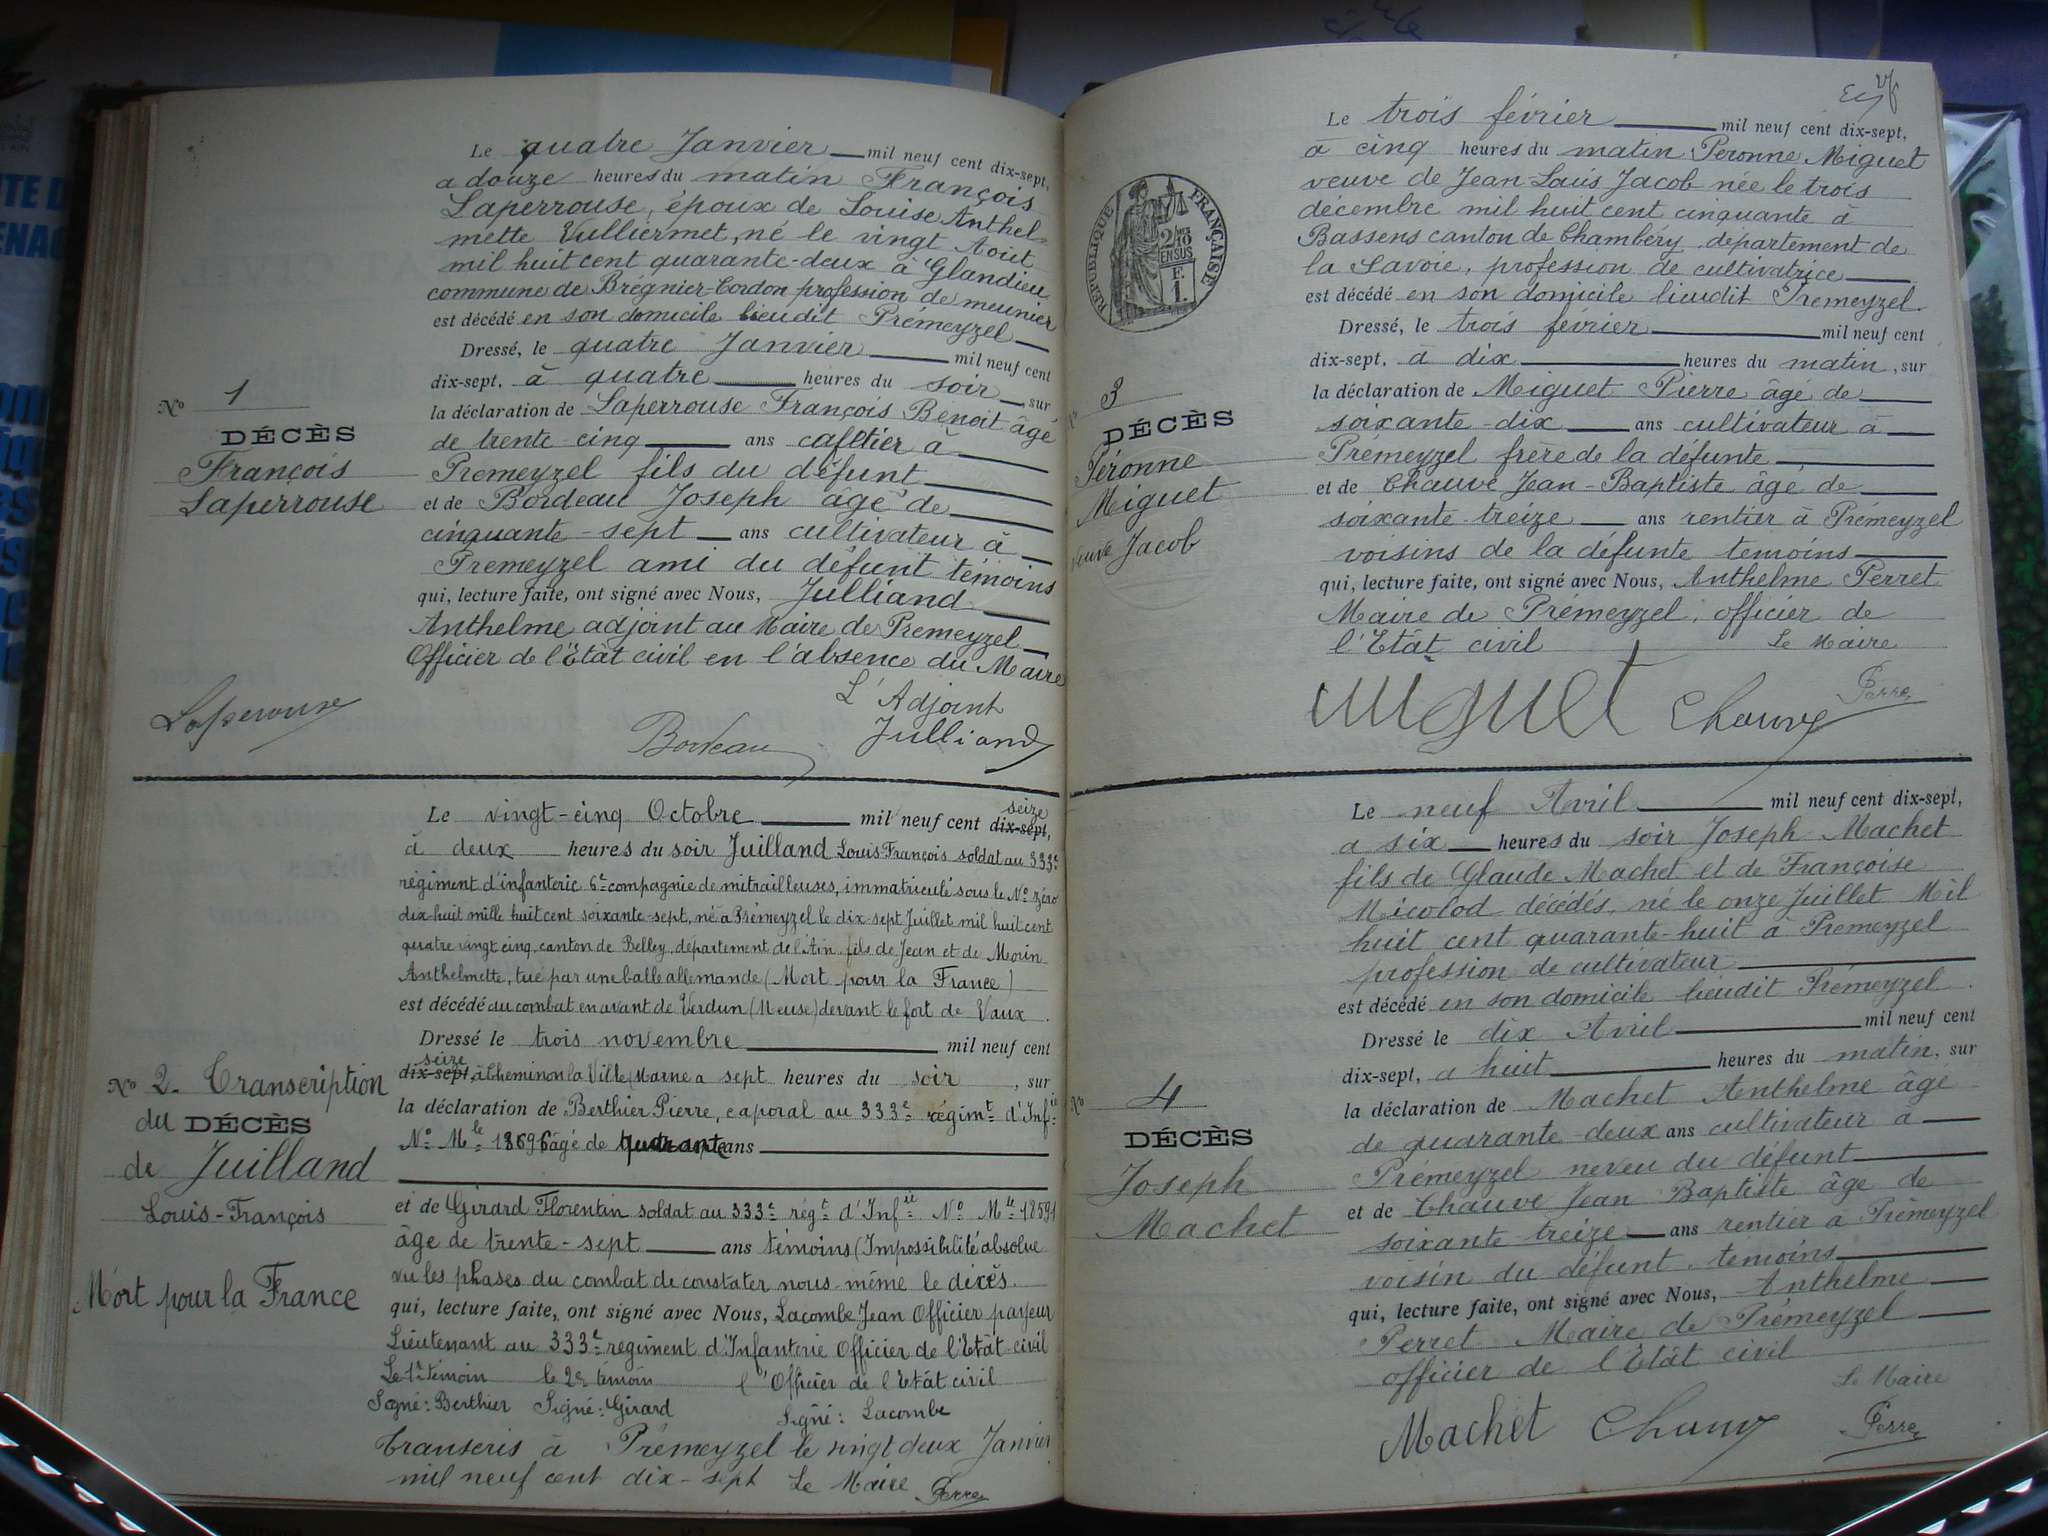 Le quatre Janvier mil neuf cent dix-sept,
a douze heures du matin François
Laperrouse, époux de Louise Anthel-
mette Vulliermet, né le vingt Aout
mil huit cent quarante-deux à Glandieu
commune de Brégnier-Cordon profession de meunier
est décédé en son domicile lieudit Prémeyzel
Dressé, le quatre Janvier mil neuf cent
dix-sept, à quatre heures du soir, sur
la déclaration de Laperrouse François Benoit âgé
de trente cinq ans cafetier à
Premeyzel fils du défunt
et de Bordeau Joseph âgé de
cinquante-sept ans cultivateur à
Prémeyzel ami du défunt témoins
qui, lecture faite, ont signé avec Nous, Julliand
Anthelme adjoint au Maire de Premeyzel
Officier de l'Etât civil en l'absence du Maire
L'Adjoint
Laperouse Bordeau Julliand
No 1
DÉCÈS
François
Laperrouse
Le vingt-cinq Octobre mil neuf cent dix-sept, seize
à deux heures du soir Juilland Louis François soldat au 333e
régiment d'infanterie 6e compagnie de mitrailleuses, immatriculé sous le No zéro
dix-huit mille huit cent soixante-sept, né à Prémeyzel le dix-sept Juillet mil huit cent
quatre vingt cinq, canton de Belley, département de l'Ain, fils de Jean et de Morin
Anthelmette, tué par une balle allemande (Mort pour la France)
est décédé au combat en avant de Verdun (Meuse) devant le fort de Vaux.
Dressé le trois novembre mil neuf cent
seize
dix-sept, à Cheminon la Ville, Marne a sept heures du soir, sur
la déclaration de Berthier Pierre, caporal au 333e régimt d'Infie
No Mle âgé de ans
et de Girard Florentin soldat au 333e régt d'Infie No Mle 18591
âge de trente-sept ans témoins (Impossibilité absolue
vu les phases du combat de constater nous-même le décès.
qui, lecture faite, ont signé avec Nous, Lacombe Jean Officier payeur
Lieutenant au 333e regiment d'Infanterie Officier de l'Etât-civil
Le 1r témoin le 2e témoin l'Officier de l'Etât civil
Signé: Berthier Signé: Girard Signé: Lacombe
Transcris à Prémeyzel le vingt deux Janvier
mil neuf cent dix-sept Le Maire Perret
No 2. Transcription
du DÉCÈS
de Juilland
Louis-François
Mort pour la France
Le trois février mil neuf cent dix-sept,
a cinq heures du matin Peronne Miguet
veuve de Jean-Louis Jacob née le trois
décembre mil huit cent cinquante à
Bassens canton de Chambéry département de
la Savoie, profession de cultivatrice
est décédé en son domicile lieudit Prémeyzel.
Dressé, le trois février mil neuf cent
dix-sept, à dix heures du matin, sur
la déclaration de Miguet Pierre âgé de
soixante-dix ans cultivateur à
Prémeyzel frère de la défunte
et de Chauve Jean-Baptiste âgé de
soixante-treize ans rentier à Prémeyzel
voisins de la défunte temoins
qui, lecture faite, ont signé avec Nous, Anthelme Perret
Maire de Prémeyzel, officier de
l'Etât civil Le Maire
Miguet Chauve Perret
RÉPUBLIQUE FRANÇAISE
2/10
EN SUS
F.
1.
3
DÉCÈS
Péronne
Miguet
veuve Jacob
Le neuf Avril mil neuf cent dix-sept,
a six heures du soir Joseph Machet
fils de Glaude Machet et de Françoise
Micolod décédés, né le onze Juillet Mil
huit cent quarante-huit à Prémeyzel
profession de cultivateur
est décédé en son domicile lieudit Prémeyzel.
Dressé le dix Avril mil neuf cent
dix-sept, a huit heures du matin, sur
la déclaration de Machet Anthelme âgé
de quarante-deux ans cultivateur à
Prémeyzel neveu du défunt
et de Chauve Jean Baptiste âgé de
soixante treize ans rentier à Prémeyzel
voisin du défunt, temoins
qui, lecture faite, ont signé avec Nous, Anthelme
Perret Maire de Prémeyzel
officier de l'Etât civil
Le Maire
Machet Chauve Perret
No 4
DÉCÈS
Joseph
Machet